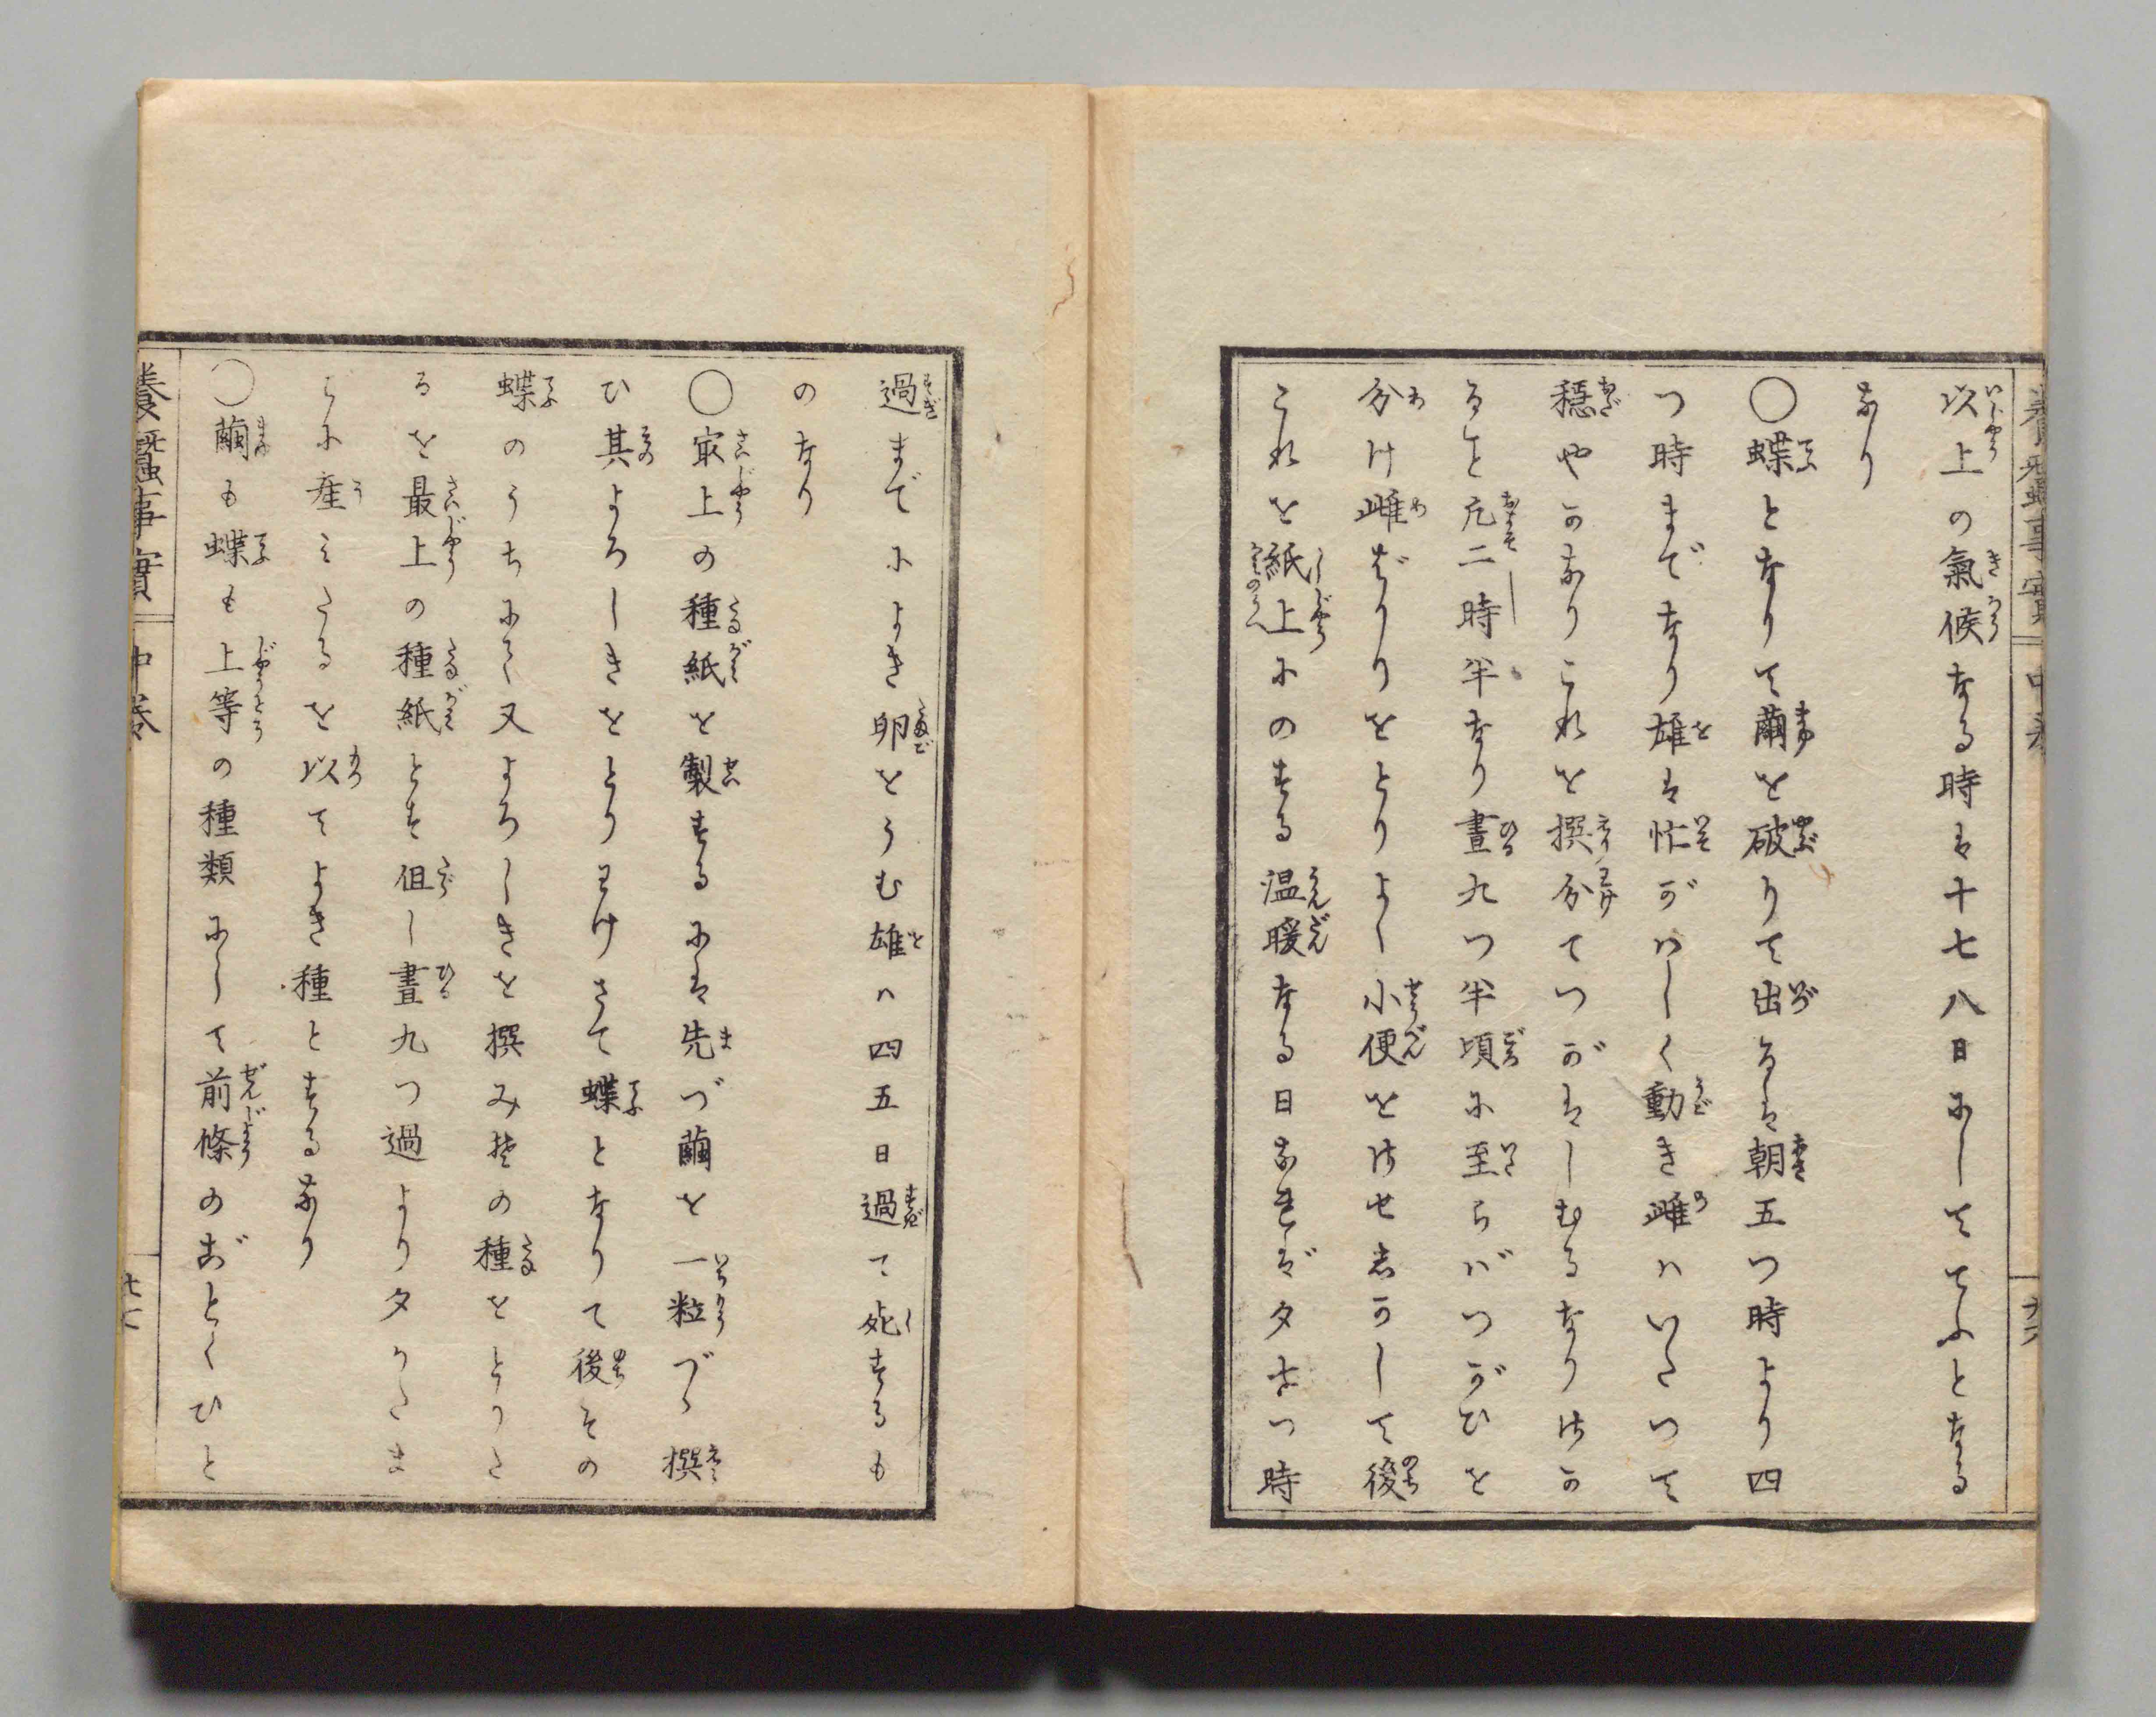 以上の氣候なる時は十七八日にしててふとなる
なり
○蝶となりて繭を破りて出るは朝五つ時より四
つ時までなり雄は忙がハしく動き雌ハいたつて
穏やかなりこれを撰分てつがはしむるなりけか
ると凡二時半なり晝九つ半頃に至らバつがひを
分け雌ばかりをとりよく小便をはせしかして後
これを紙上にのする温暖なる日なれば夕七つ時
養蠶事實 中卷
過までによき卵をうむ雄ハ四五日過て死するも
のなり
○冣上の種紙を製するには先づ繭を一粒づゝ撰
ひ其よろしきをとりわけさて蝶となりて後その
蝶のうちにて又よろしきを撰み其の種をとりた
るを最上の種紙とす但し晝九つ過より夕かたま
でに産みたるを以てよき種とするなり
○繭も蝶も上等の種類にして前條のごとくひと
養蠶事實 中卷